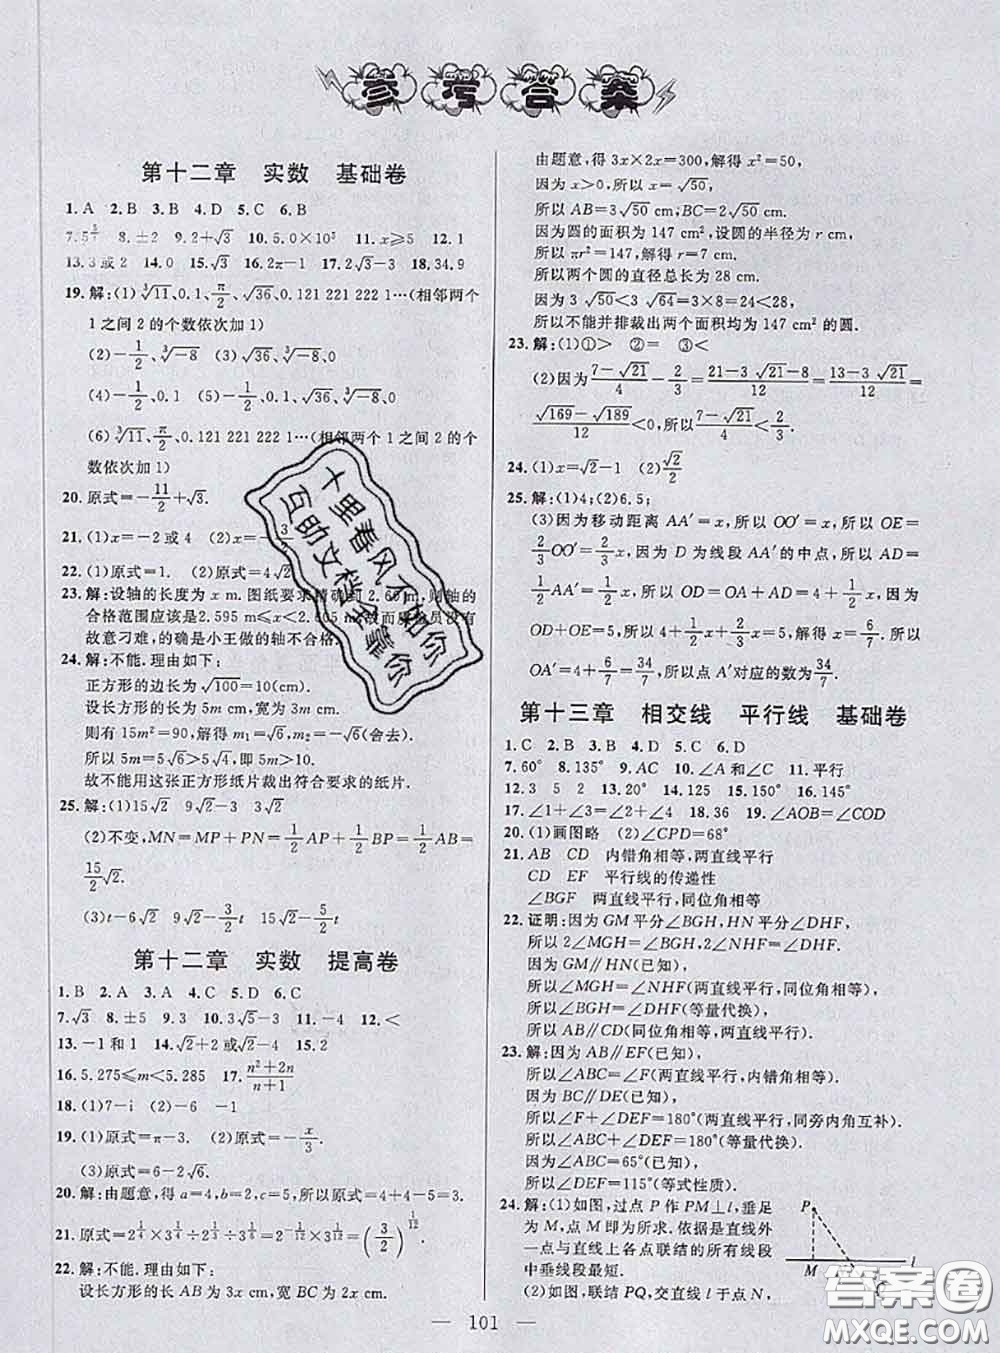 参考答案
第十二章 实数 基础卷
1.A 2.B 3.B 4.D 5.C 6.B
8.±2 9.2+√3 10.5.0×10⁵ 11.x⩾5 12.1
13.3或2 14.0 15.√3 16.2π−1 17.2√3−√13 18.34.9
19.解:(1)∛11、0.1、π/2、√36、0.121 221 222 1…(相邻两个
1之间2的个数依次加1)
(2)−1/2、∛−8 (3)√36、∛−8、0
(4)−1/2、0.1 (5)−1/2、0.1、√36、∛−8、0
(6)∛11、π/2、0.121 221 222 1…(相邻两个1之间2的个
数依次加1)
20.原式=−11/2+√3.
21.(1)x=−2或4 (2)x=−3/
22.(1)原式= (2)原式=4√2
23.解:设轴的长度为x m.图纸要求精确到2.60 m,则轴的
合格范围应该是2.595 m⩽x<2.605 m,故而质检员没有
故意刁难,的确是小王做的轴不合格.
24.解:不能.理由如下:
正方形的边长为√100=10(cm).
设长方形的长为5m cm,宽为3m cm.
则有15m²=90,解得m₁=√6,m₂=−√6(舍去).
所以5m=5√6>5√4,即5m>10.
故不能用这张正方形纸片裁出符合要求的纸片.
25.解:(1)15√2 9√2−3 3√2
(2)不变,MN=MP+PN=1/2AP+1/2BP=1/2AB=
15/2√2.
(3)t−6√2 9√2−3/2t 15√2−5/2t
第十二章 实数 提高卷
1.B 2.A 3.A 4.C 5.D 6.C
7.√3 8.±5 9.3 10.3√5−3 11.−4 12.<
13.−1和1 14.√2+2或√2−4 15.2
16.5.275⩽m<5.285 17.n²+2n/n+1
18.(1)7−i (2)−6 −1
19.(1)原式=π−3. (2)原式=−x/3.
(3)原式=6−2√6.
20.解:由题意,得a=4,b=2,c=5,所以原式=4+4−5=3.
21.原式=2^(1/4)×3^(1/4)÷2^(1/3)÷3^(1/6)=2^(−1/12)×3^(1/12)=(3/2)^(1/12).
22.解:不能.理由如下:
设长方形的长AB为3x cm,宽BC为2x cm.
由题意,得3x×2x=300,解得x²=50,
因为x>0,所以x=√50,
所以AB=3√50 cm,BC=2√50 cm.
因为圆的面积为147 cm²,设圆的半径为r cm,
所以πr²=147,解得r=7.
所以两个圆的直径总长为28 cm.
因为3√50<3√64=3×8=24<28,
所以不能并排裁出两个面积均为147 cm²的圆.
23.解:(1)①> ②= ③<
(2)因为7−√21/4−2/3=21−3√21−8/12=13−3√21/12=
√169−√189/12<0,所以7−√21/4<2/3.
24.(1)x=√2−1 (2)√2/2
25.解:(1)4;(2)6.5;
(3)因为移动距离AA′=x,所以OO′=x,所以OE=
2/3OO′=2/3x,因为D为线段AA′的中点,所以AD=
1/2AA′=1/2x,所以OD=OA+AD=4+1/2x,因为
OD+OE=5,所以4+1/2x+2/3x=5,解得x=6/7.所以
OA′=4+6/7=34/7,所以点A′对应的数为34/7.
第十三章 相交线 平行线 基础卷
1.C 2.B 3.B 4.D 5.C 6.D
7.60° 8.135° 9.AC 10.∠A和∠C 11.平行
12.3 5 2 13.20° 14.125 15.150° 16.145°
17.∠1+∠3=∠2+∠4 18.36 19.∠AOB=∠COD
20.(1)画图略 (2)∠CPD=68°
21.AB CD 内错角相等,两直线平行
CD EF 平行线的传递性
∠BGF 两直线平行,同位角相等
22.证明:因为GM平分∠BGH,HN平分∠DHF,
所以2∠MGH=∠BGH,2∠NHF=∠DHF.
因为GM∥HN(已知),
所以∠MGH=∠NHF(两直线平行,同位角相等),
所以∠BGH=∠DHF(等量代换),
所以AB∥CD(同位角相等,两直线平行).
23.解:因为AB∥EF(已知),
所以∠ABC=∠F(两直线平行,内错角相等).
因为BC∥DE(已知),
所以∠F+∠DEF=180°(两直线平行,同旁内角互补).
所以∠ABC+∠DEF=180°(等量代换).
因为∠ABC=65°(已知),
所以∠DEF=115°(等式性质).
24.解:(1)如图,过点P作PM⊥l,垂足
为M,点M即为所求.依据是直线外
一点与直线上各点联结的所有线段
中垂线段最短.
(2)如图,联结PQ,交直线l于点N,
P
M
l
十里春风不如你
互助文档全靠你
答案圈
MXQE.COM
— 101 —